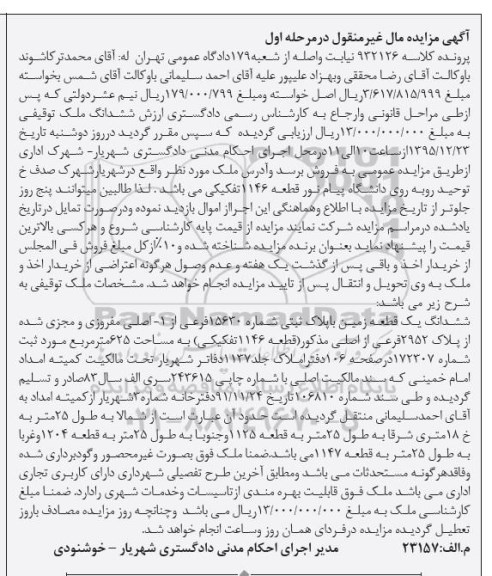 آگهی مزایده مال غیرمنقول درمرحله اول
پرونده کلاسه ۹۳۲۱۲۶ نیابت واصله از شعبه۱۷۹دادگاه عمومی تهران له: آقای محمدترکاشوند
باوکالت آقای رضا محققی وبهزاد علیپور علیه آقای احمد سلیمانی باوکالت آقای شمس بخواسته
مبلغ ۳/۶۱۷/۸۱۵/۹۹۹ریال اصل خواسته ومبلغ ۱۷۹/۰۰۰/۷۹۹ریال نیم عشردولتی که پس
ازطی مراحل قانونی وارجاع به کارشناس رسمی دادگستری ارزش ششدانگ ملک توقیفی
به مبلغ ۱۳/۰۰۰/۰۰۰/۰۰۰ریال ارزیابی گردیده که سپس مقرر گردید درروز دوشنبه تاریخ
۱۳۹۵/۱۲/۲۳ازساعت۱۰الی۱۱درمحل اجرای احکام مدنی دادگستری شهریار- شهرک اداری
ازطریق مزایده عمومی به فروش برسد وآدرس ملک مورد نظر واقع درشهریارشهرک صدف خ
توحید روبه روی دانشگاه پیام نور قطعه ۱۱۴۶تفکیکی می باشد. لذا طالبین میتوانند پنج روز
جلوتر از تاریخ مزایده با اطلاع وهماهنگی این اجرااز اموال بازدید نموده ودرصورت تمایل درتاریخ
یادشده درمراسم مزایده شرکت نمایند مزایده از قیمت پایه کارشناسی شروع و هرکسی بالاترین
قیمت را پیشنهاد نماید بعنوان برنده مزایده شناخته شده و۱۰٪ازکل مبلغ فروش فی المجلس
از خریدار اخذ و باقی پس از گذشت یک هفته و عدم وصول هرگونه اعتراضی از خریدار اخذ و
ملک به وی تحویل و انتقال پس از تایید مزایده انجام خواهد شد. مشخصات ملک توقیفی به
شرح زیر می باشد:
ششدانگ یک قطعه زمین باپلاک ثبتی شماره ۱۵۶۳۰فرعی از ۱- اصلی مفروزی و مجزی شده
از پلاک ۲۹۵۲فرعی از اصلی مذکور(قطعه ۱۱۴۶تفکیکی) به مساحت ۶۲۵مترمربع مورد ثبت
شماره ۱۷۲۳۰۷درصفحه ۱۰۶دفتراملاک جلد۱۱۳۷دفاتر شهریار تحت مالکیت کمیته امداد
امام خمینی که سند مالکیت اصلی با شماره چاپی ۲۴۳۶۱۵سری الف سال۸۳صادر و تسلیم
گردیده و طی سند شماره ۱۰۶۸۱۰تاریخ ۹۱/۱۱/۲۴دفترخانه شماره۳شهریار ازکمیته امداد به
آقای احمدسلیمانی منتقل گردیده است حدود آن عبارت است از شمالا به طول ۲۵متر به
خ ۱۸متری شرقا به طول ۲۵متر به قطعه ۱۱۲۵وجنوبا به طول ۲۵متر به قطعه ۱۲۰۴وغربا
به طول ۲۵متر به قطعه ۱۱۴۷می باشد.ضمنا ملک فوق بصورت غیرمحصور وگودبرداری شده
وفاقدهرگونه مستحدثات می باشد ومطابق آخرین طرح تفصیلی شهرداری دارای کاربری تجاری
اداری می باشد ملک فوق قابلیت بهره مندی ازتاسیسات وخدمات شهری رادارد. ضمنا مبلغ
کارشناسی ملک به مبلغ ۱۳/۰۰۰/۰۰۰/۰۰۰ریال می باشد وچنانچه روز مزایده مصادف باروز
تعطیل گردیده مزایده درفردای همان روز وساعت انجام خواهد شد.
م.الف:۲۳۱۵۷ مدیر اجرای احکام مدنی دادگستری شهریار – خوشنودی